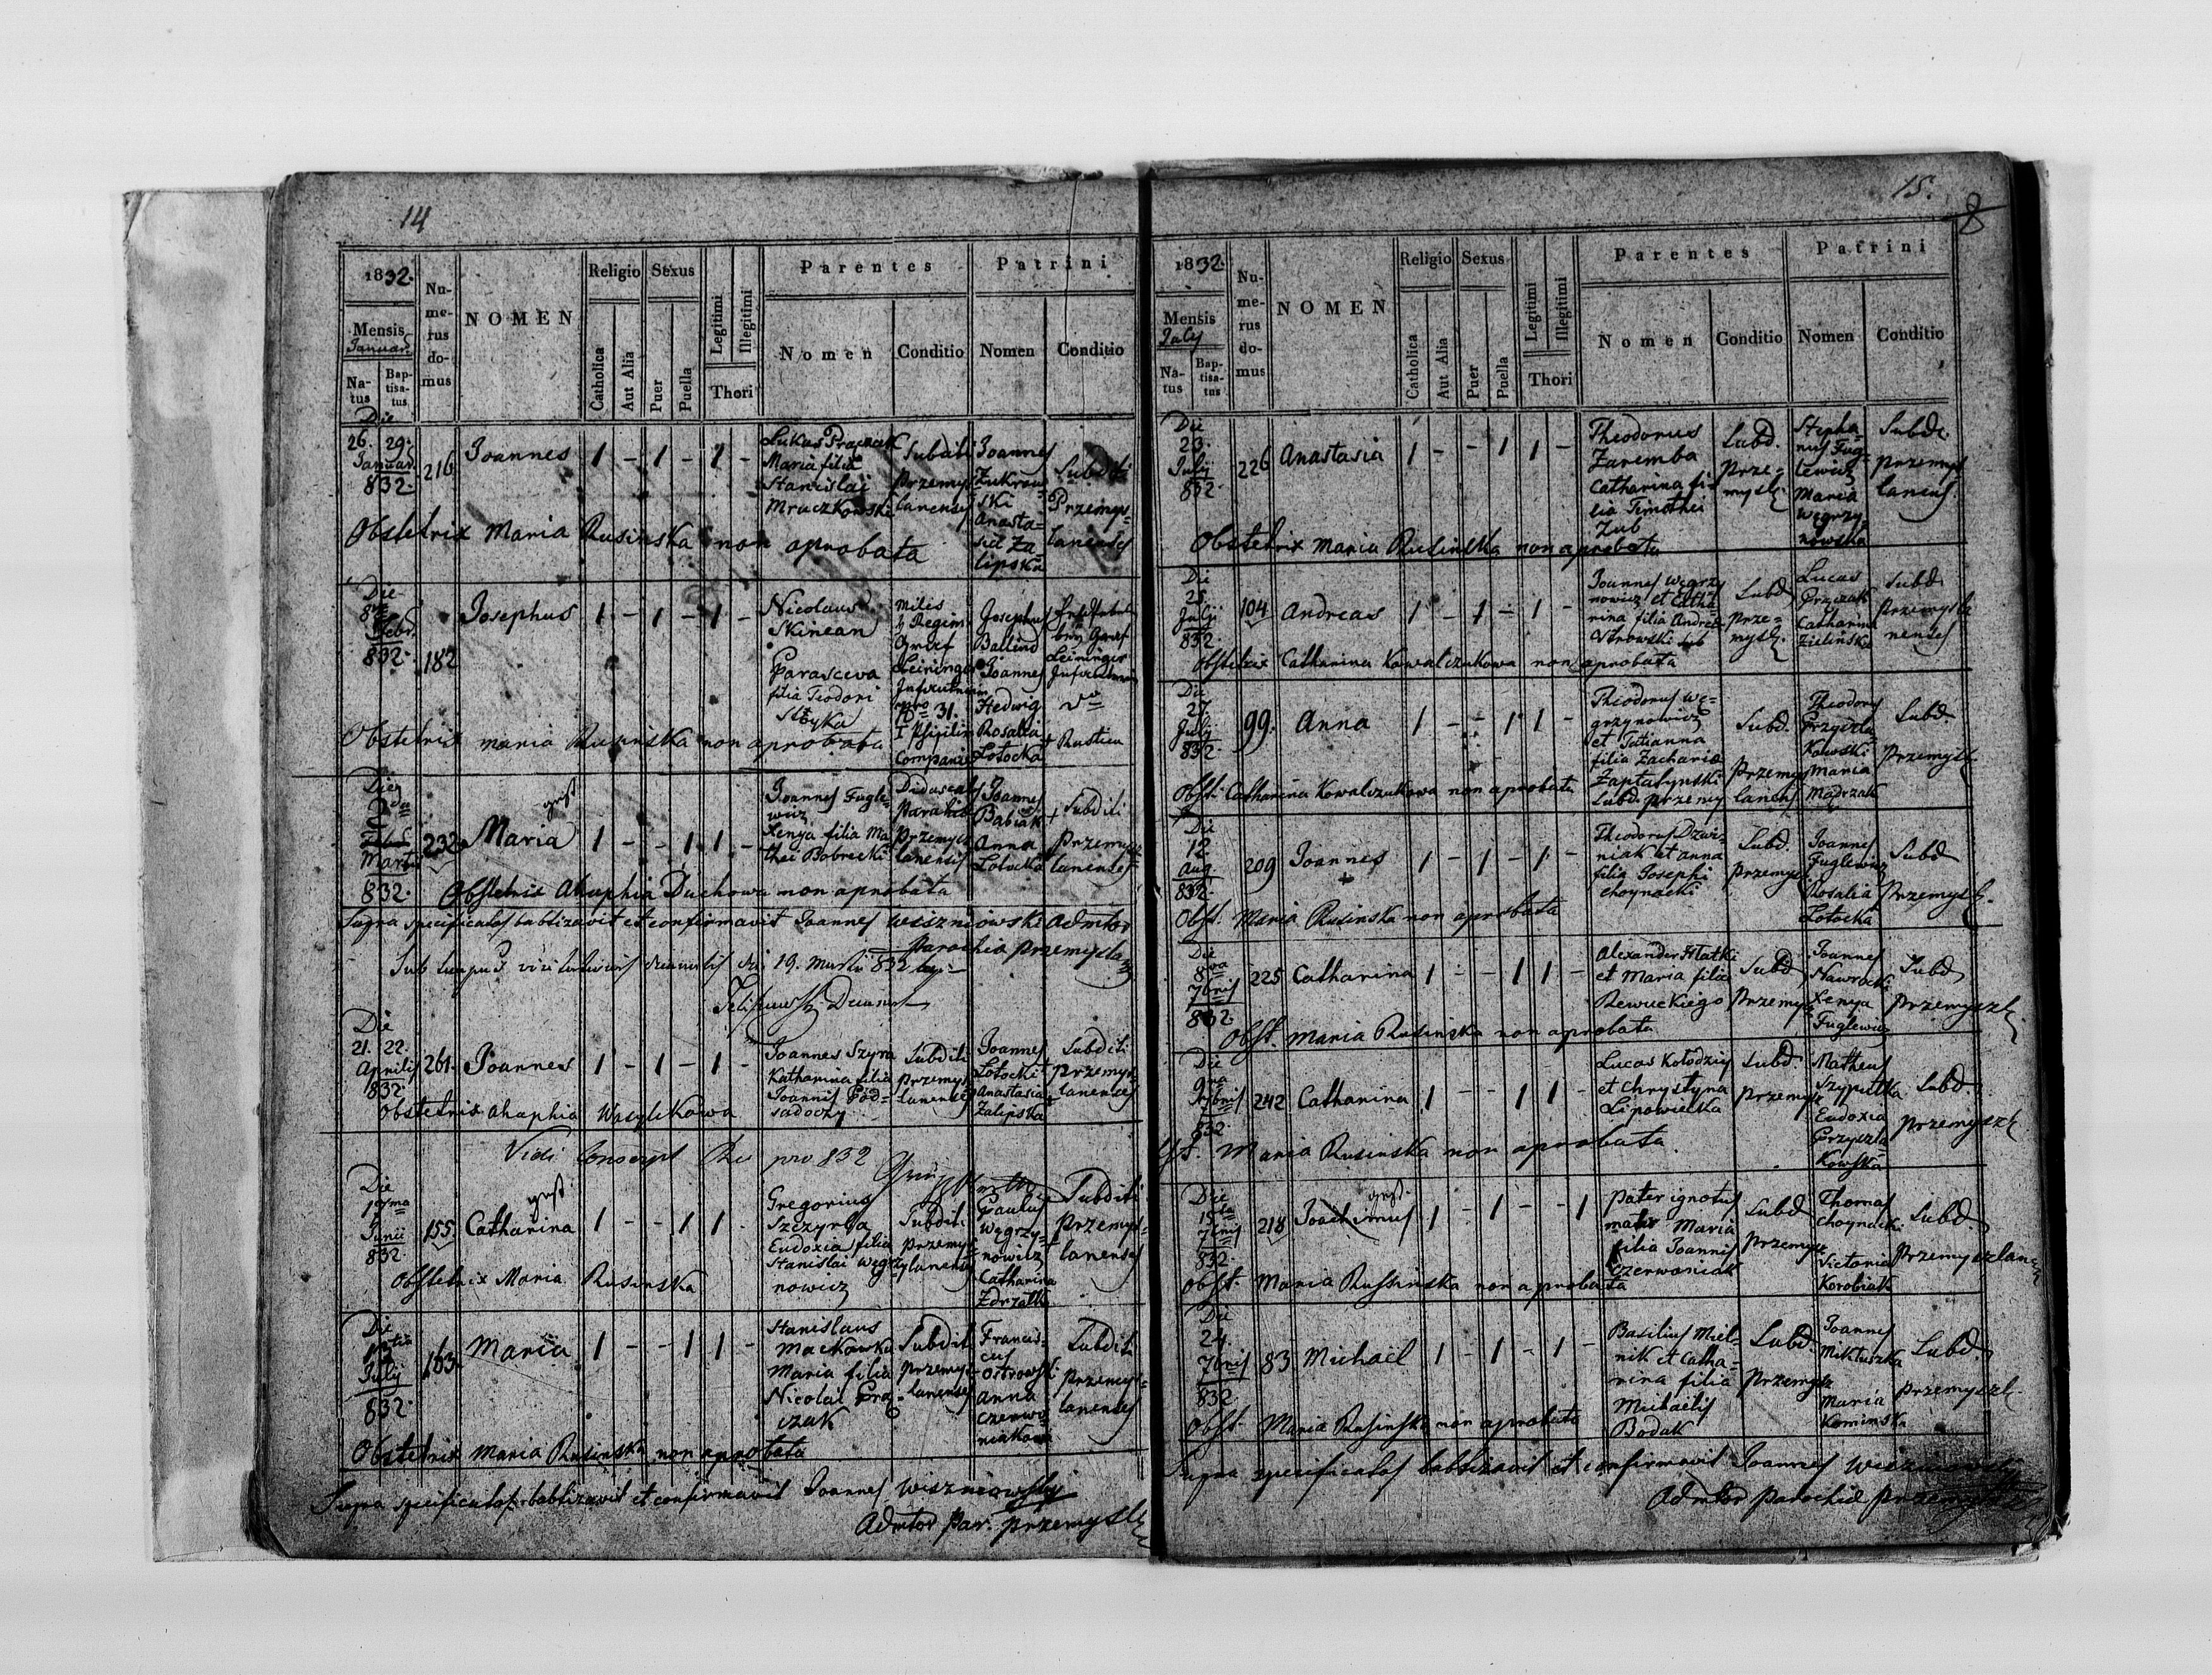 14
1832.
Mensis
Januar.
Natus
Baptisatus
Numerus domus
NOMEN
Religio
Catholica
Aut Alia
Sexus
Puer
Puella
Legitimi
Illegitimi
Thori
Parentes
Nomen
Conditio
Patrini
Nomen
Conditio
Die
26. 29.
Januar.
832.
216
Joannes
1 - 1 - 1 -
Lukas
Maria filia
Stanislai
Mruczkowski
Subditi
Przemys
lanenses
Joannes
Zukrow
ski
Anasta=
sia Za=
lipska
Subditi
Przemys=
lanenses
Obstetrix Maria Rusinska non aprobata
Die
8va
Febr.
832.
182
Josephus
1 - 1 - 1 -
Nicolaus
Skinean
Parasceva
filia Teodori
Styka
Miles
Regim
Graf
Leininge
Infanterie
Nro 31.
Companie
Josephus
Balind
Joannes
Hedwig
Rosalia
Lotocka
Leininger
Rustica
Obstetrix Maria Rusinska non aprobata
Die
2da
Marti
832.
232
Maria
1 - - 1 1 -
Joannes Fugle=
wicz
Xenya filia Ma
thei Bobrecki
Parochia
Przemys
lanensis
Joannes
Babiak
Anna
Lotocka
Subditi
Przemys=
lanenses
Obstetrix Ahaphia Duchowa non aprobata
Supra specificatos babtizavit et confirmavit Joannes Wiszniowski Admtor
Parochia Przemyslan
19. Martii 832
Die
21. 22.
Aprilis
832.
261.
Joannes
1 - 1 - 1 -
Joannes Szyra
Katharina filia
Joannis Pod=
sadoczy
Subditi
Przemys
lanenses
Joannes
Lotocki
Anastasia
Zalipska
Subditi
Przemys
lanenses
Obstetrix Ahaphia Wasylkowa
Vidi Concept pro 832
Die
Junii
832
155.
Catharina
1 - - 1 1 -
Gregorius
Szczyrba
Eudoxia filia
Stanislai Węgrzy
nowicz
Subditi
Przemys
lanenses
Paulus
Węgrzy=
nowicz
Catharina
Subditi
Przemys=
lanenses
Obstetrix Maria Rusinska
Die
July
832.
163
Maria
1 - - 1 1 -
Stanislaus
Mackowka
Maria filia
Nicolai Gra=
czak
Subditi
Przemys=
lanenses
Francis=
cus
Ostrowski
Anna
Czerwo=
niakowa
Subditi
Przemys=
lanenses
Obstetrix Maria Rusinska non aprobata
Supra specificatos babtizavit et confirmavit Joannes Wiszniowski
Admtor Par. Przemysl
15.
8
1832.
Mensis
July
Natus
Baptisatus
Numerus domus
NOMEN
Religio
Catholica
Aut Alia
Sexus
Puer
Puella
Legitimi
Illegitimi
Thori
Parentes
Nomen
Conditio
Patrini
Nomen
Conditio
Die
23.
July
832.
226
Anastasia
1 - - 1 1 -
Theodorus
Zaremba
Catharina fi=
lia Timothei
Zub
Subd.
Prze=
mysl.
Stepha=
nus Fug=
lewicz
Maria
Węgrzy=
nowska
Subd.
Przemys
lanens
Obstetrix Maria Rusinska non aprobata
Die
25.
July
832.
104
Andreas
1 - 1 - 1 -
Joannes Węgrzy
nowicz et Catha=
rina filia Andreae
Ostrowski
Subd
Prze=
mysl.
Lucas
Catharina
Zielinska
Subd
Obstetrix Catharina Kowalczukowa non aprobata
Die
27.
July
832.
99.
Anna
1 - - 1 1 -
Theodorus Wę=
grzynowicz
et Tatianna
filia Zacharia
Zaptatynski
Subd. Przemy
Subd.
Przemys
lanens
Theodorus
Przyszla
kowski
Maria
Mądrzak
Subd
Przemysl.
Obst. Catharina Kowalczukowa non aprobata
Die
12
Aug
832.
209
Joannes
1 - 1 - 1 -
Theodorus Dzwi=
niak et Anna
filia Josephi
Choynacki
Subd.
Przemys.
Joannes
Fuglewicz
Rosalia
Lotocka
Subd
Przemysl.
Obst. Maria Rusinska non aprobata
Die
8va
7bris
832.
225
Catharina
1 - - 1 1 -
Alexander Hlatki
et Maria filia
Rewuckiego
Subd
Przemys
Joannes
Nawrocki
Xenya
Fuglewicz
Subd
Przemyszl.
Obst. Maria Rusinska non aprobata
Die
9na
7bris
832
242
Catharina
1 - - 1 1 -
Lucas Kolodziy
et Chrystyna
Lipowiecka
Subd.
Przemysl
Matheus
Szypulka
Eudoxia
Przyszla
kowska
Subd.
Przemyszl
Maria Rusinska non aprobata
Die
15ta
7bris
832.
218
Joachimus
1 - 1 - - 1
Pater ignotus
mater Maria
filia Joannis
Czerwoniak
Subd
Przemysz
Thomas
Choynacki
Victoria
Korobiak
Subd
Przemyszlan
Obst. Maria Russinska non aprobata
Die
24.
7bris
832
83
Michaël
1 - 1 - 1 -
Basilius Miel=
nik et Catha=
rina filia
Michaelis
Bodak
Subd.
Przemysz
Joannes
Mikluszka
Maria
Kominska
Subd.
Przemyszl.
Obst. Maria Rusinska non aprobata
Supra specificatos babtizavit et confirmavit Joannes Wiszniowski
Admtor Parochia